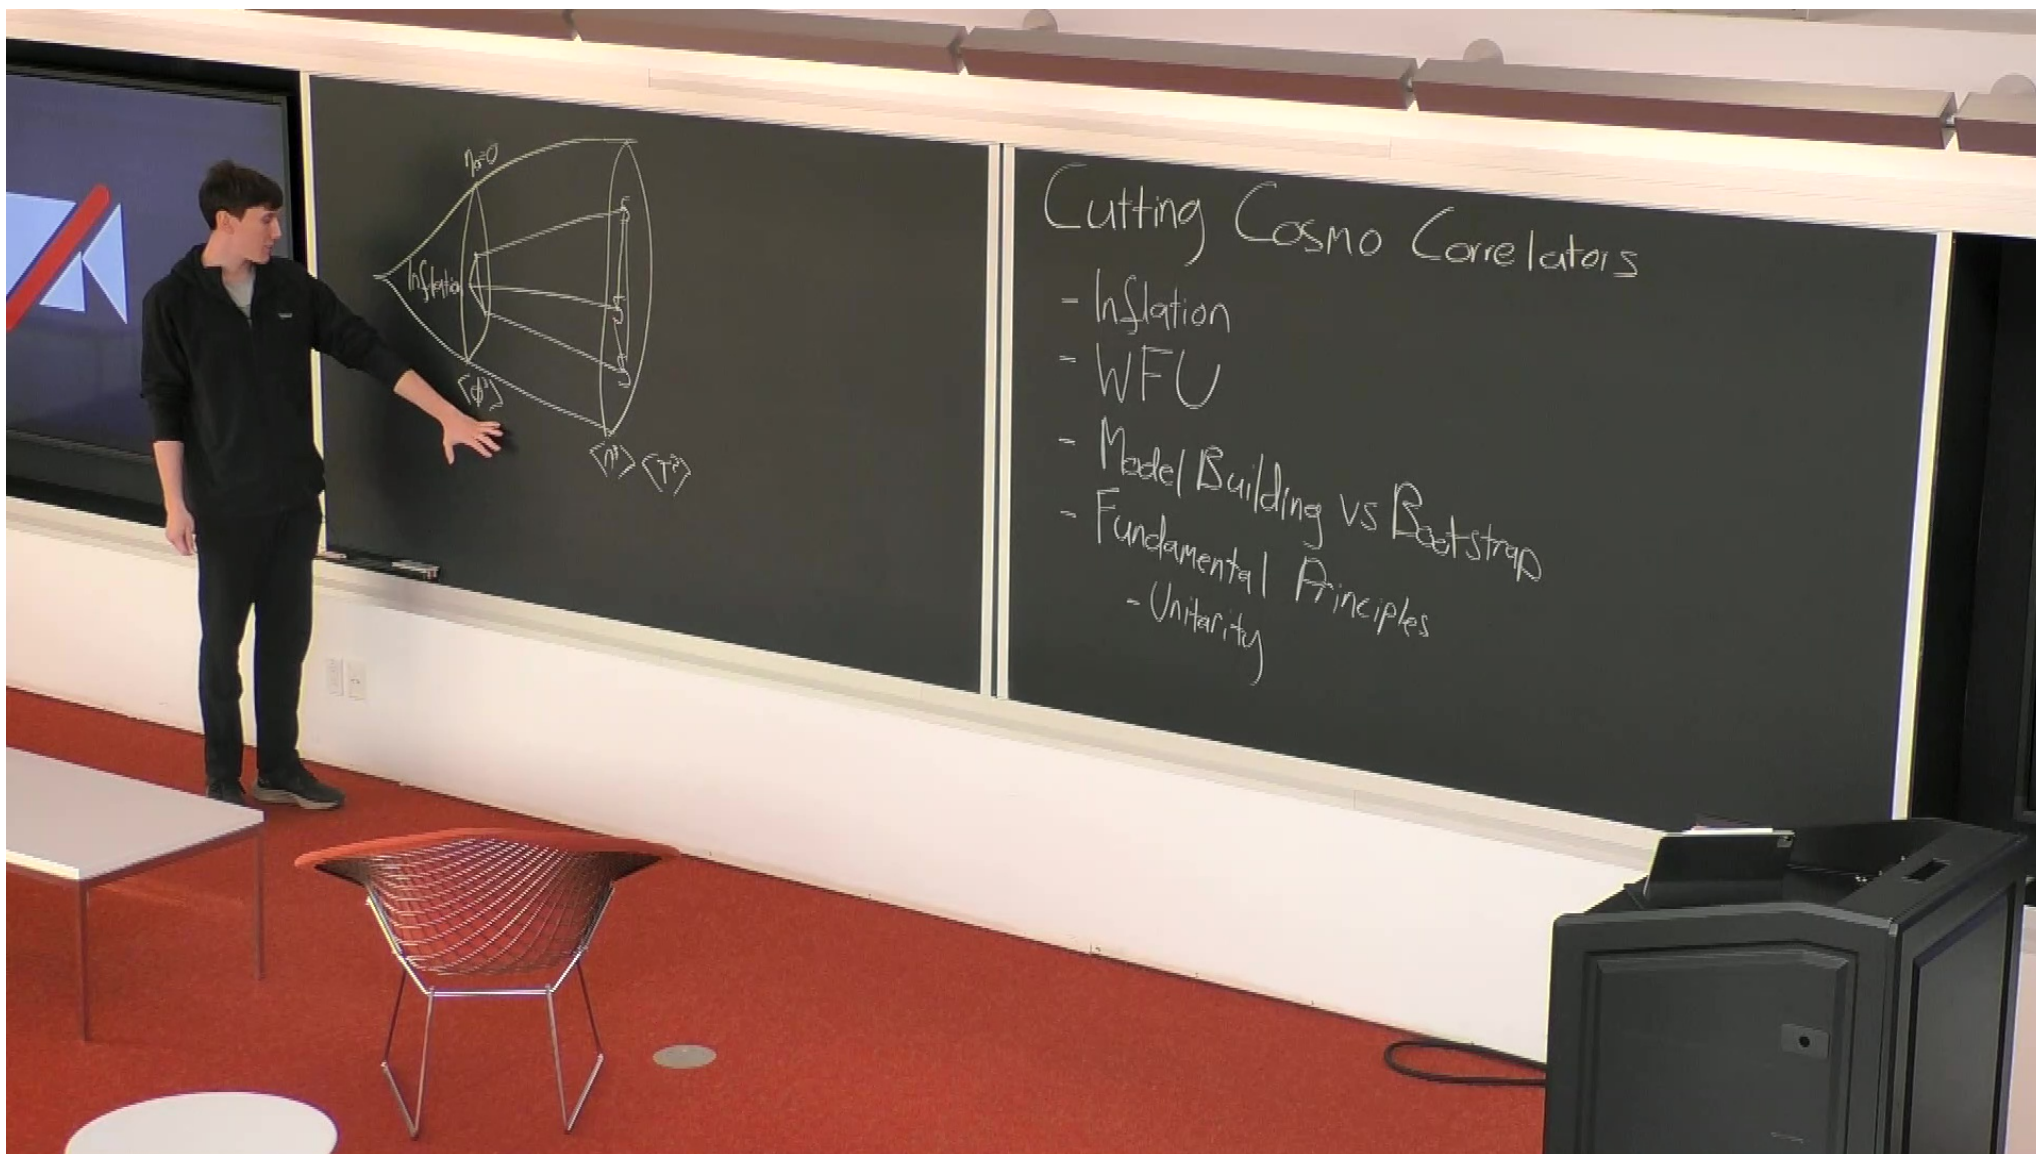 η₀=0
Inflation
⟨ϕ³⟩
⟨T²⟩
Cutting Cosmo Correlators
- Inflation
- WFU
- Model Building vs Bootstrap
- Fundamental Principles
- Unitarity